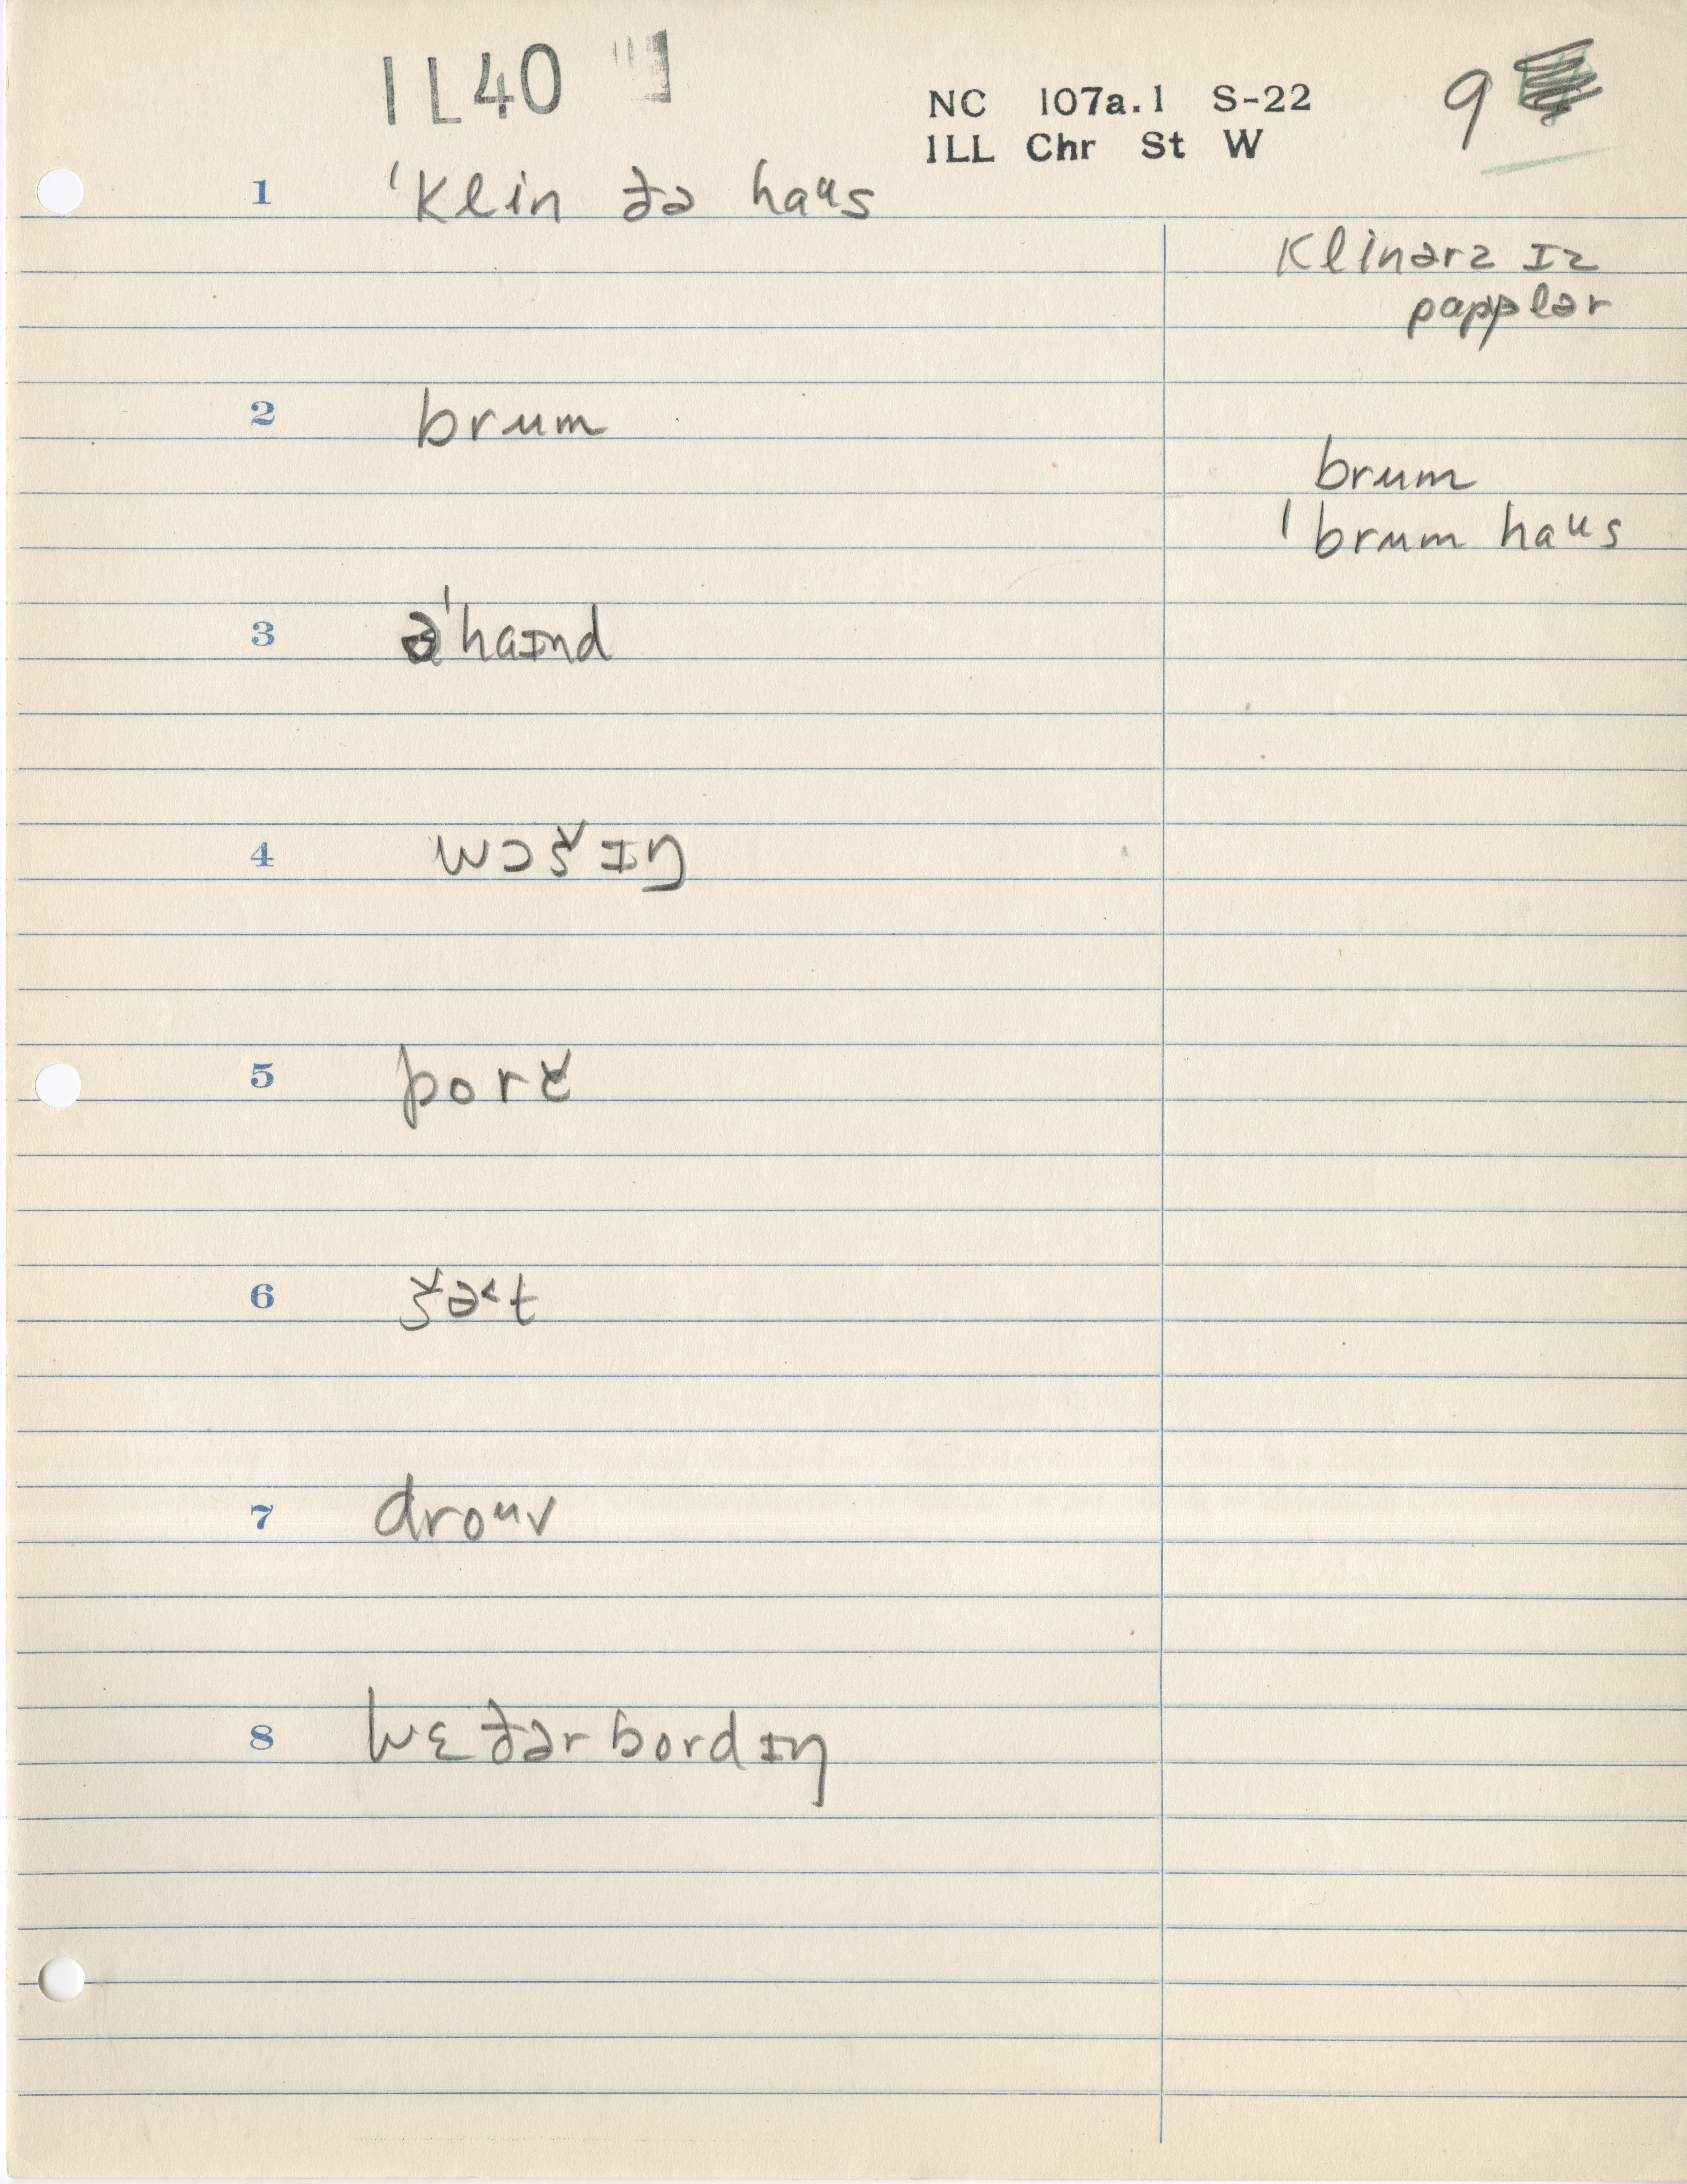 IL40
NC 107a.1 S-22
ILL Chr St W
9
1 ˈklin ðə haᵘs
klinərz ɪz
papplər
2 brum
brum
ˈbrum haᵘs
3 əˈhaɪnd
4 wɔšɪŋ
5 porč
6 šə˂t
7 droᵘv
8 wɛðərbordɪŋ